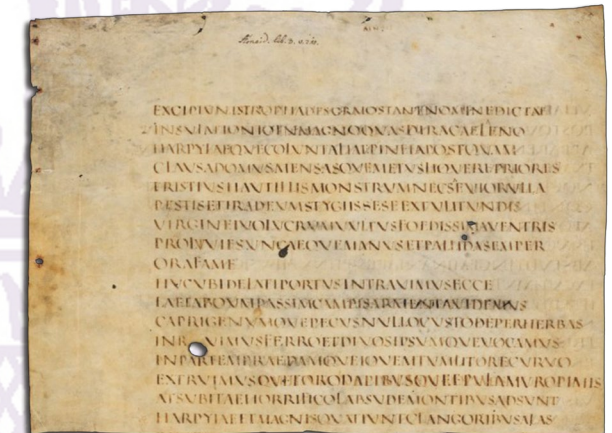 Aeneid. lib. 3. v. 210.
EXCIPIVNTSTROPHADESGRAIOSTANTNOMINEDICTAE
INSVLAEIONIOINMAGNOQVASDIRACELENO
HARPYIAEQVECOLVNTALIAEPHINEIAPOSTQVAM
CLAVSADOMVSMENSASQVEMETVSLIQVEREPRIORES
TRISTIVSHAVTILLISMONSTRVMNECSEVIORVLLA
PESTISETIRADEVMSTYGIISSESEEXTVLITVNDIS
VIRGINEIVOLVCRVMVVLTVSFOEDISSIMAVENTRIS
PROLVVIESVNCAEQVEMANVSETPALLIDASEMPER
ORAFAME
HVCVBIDELATIPORTVSINTRAVIMVSECCE
LAETABOVMPASSIMCAMPISARMENTAVIDEMVS
CAPRIGENVMQVEPECVSNVLLOCVSTODEPERHERBAS
INRVIMVSFERROETDIVOSIPSVMQVEVOCAMVS
INPARTEMPRAEDAMQVEIOVEMTVMLITORECVRVO
EXTRVIMVSQVETORODAPIBVSQVEEPVLAMVROPIMIS
ATSVBITAEHORRIFICOLABSVDEMONTIBVSADSVNT
HARPYIAEETMAGNISQVATIVNTCLANGORIBVSALAS